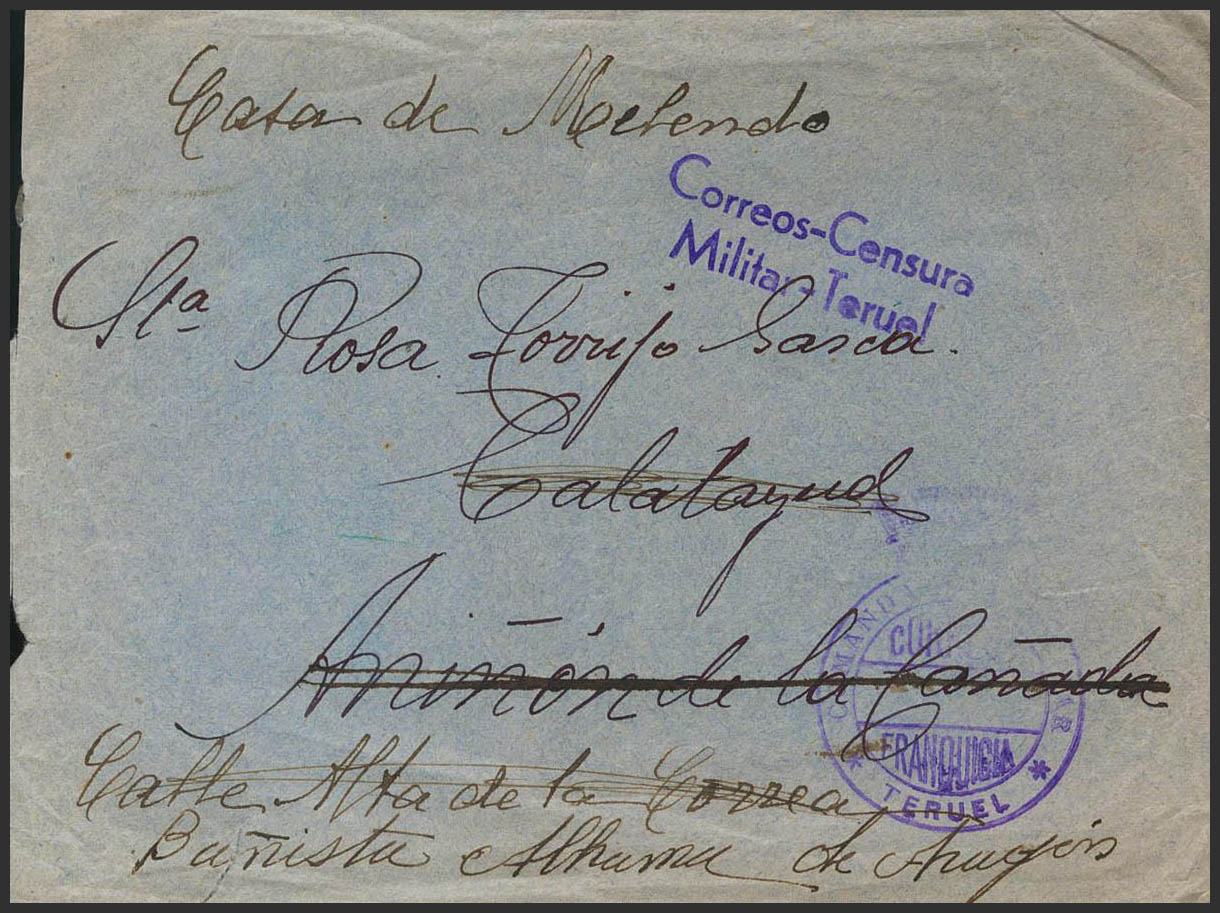 Casa de Melendo
Correos-Censura
Militar-Teruel
Sta Rosa Torrijo Garcia.
Calatayud
Aniñón de la Cañada
COMANDANCIA MILITAR
FRANQUICIA
* TERUEL *
Calle Alta de la Correa
Bañista Alhama de Aragón